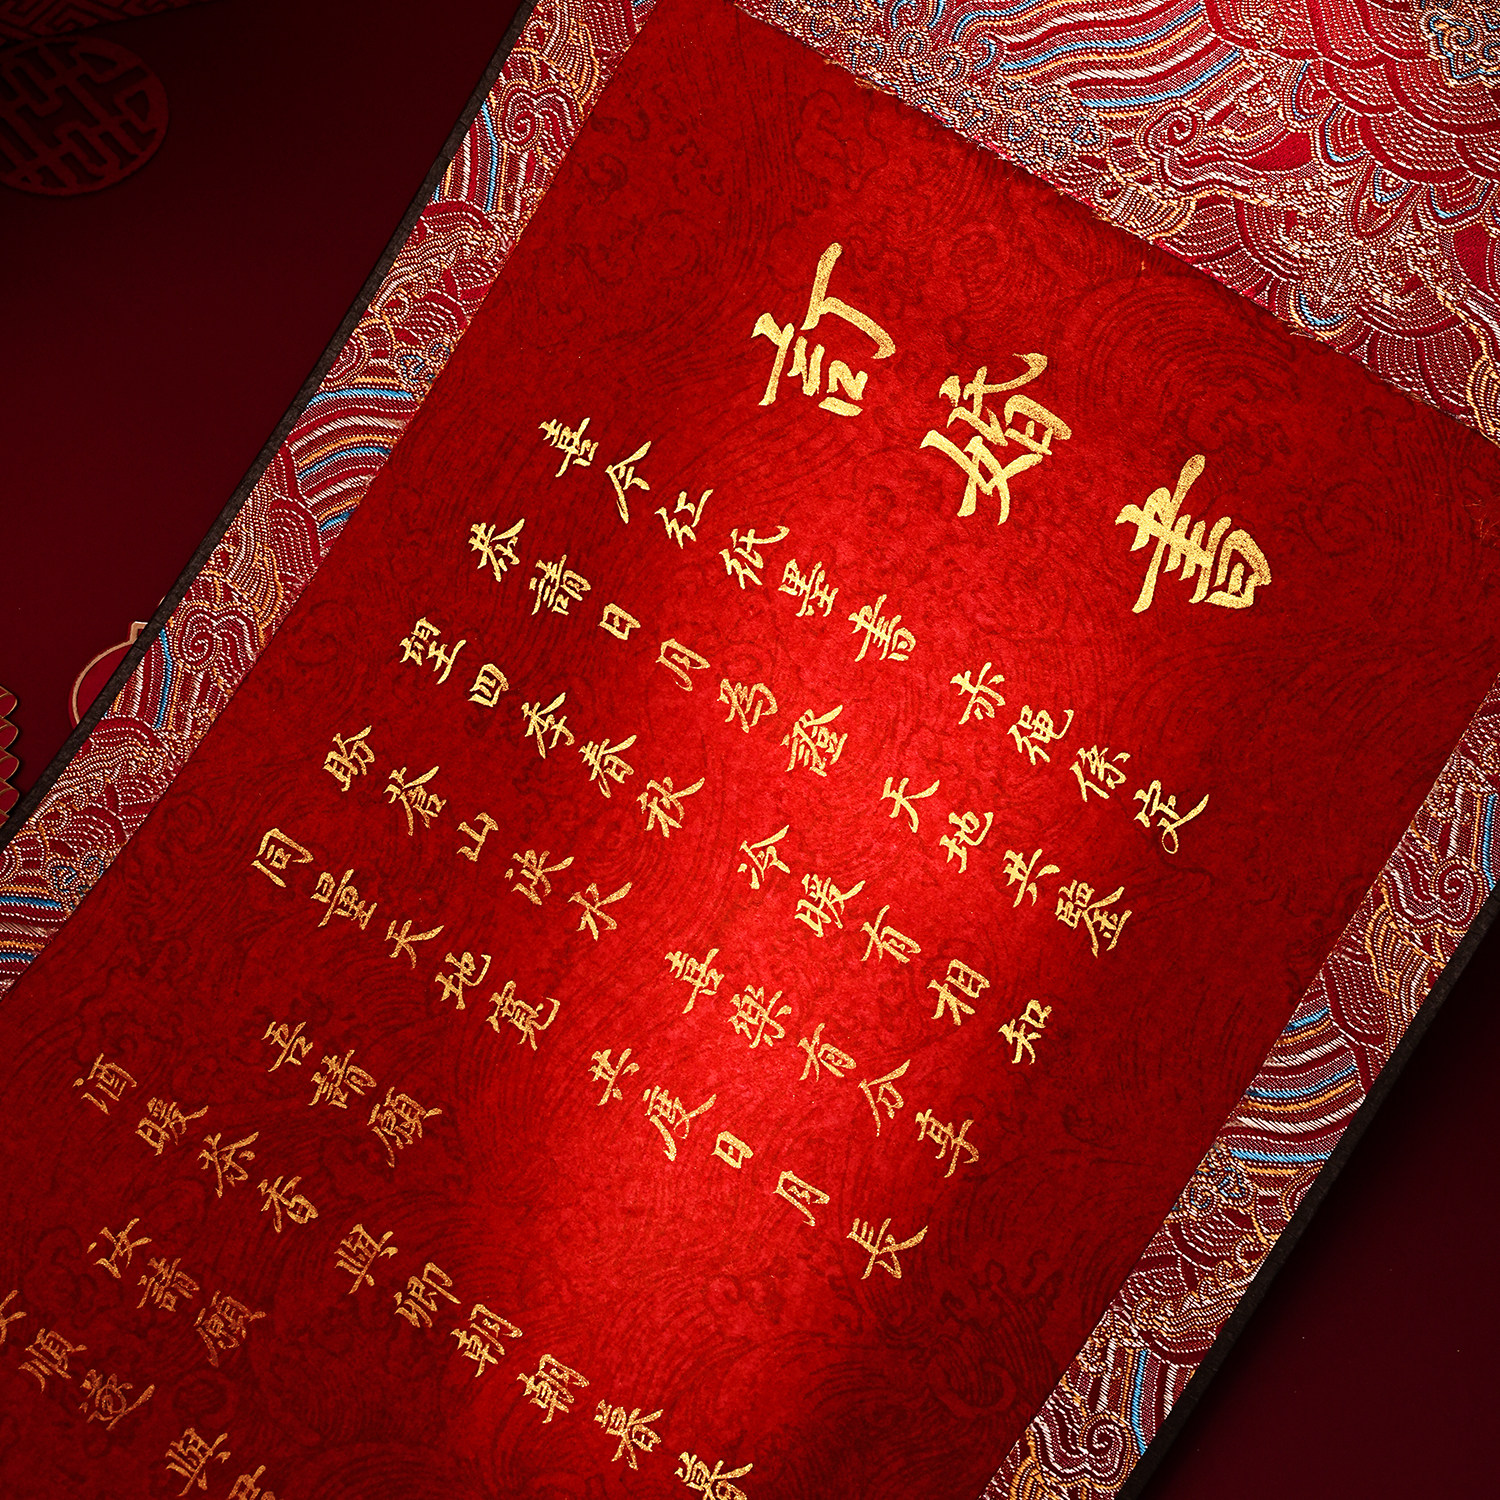 訂婚書
喜今紅紙墨書 赤繩係定
恭請日月為證 天地共鑒
望四季春秋 冷暖有相知
盼蒼山泱水 喜樂有分享
同量天地寬 共度日月長
吾請願
酒暖茶香 與卿朝朝暮暮
汝請願
順遂 與